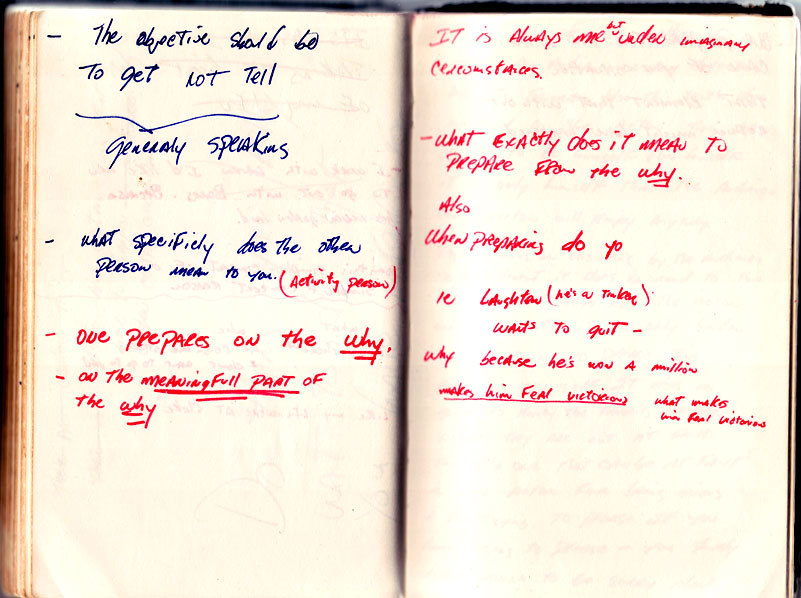 - The objective should be
To get not Tell
Generaly speaking
- what specificly does the other
person mean to you. (Activity person)
- One prepares on the why.
- on the meaningfull part of
the why
IT is Always me but under imaginary
circumstances.
- what exactly does it mean to
prepare from the why.
Also
When preparing do yo
ie Laughton (he's a Tinker)
wants to quit -
why because he's won a million
makes him Feal victorious what makes
him Feal victorious